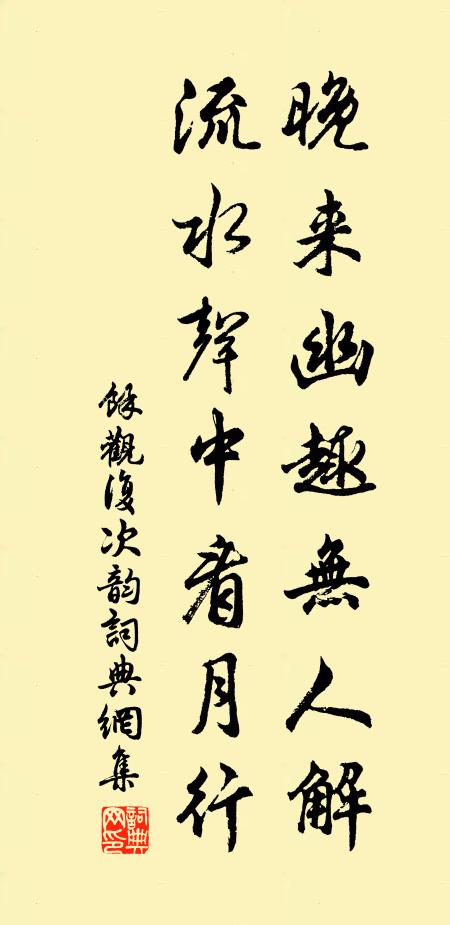 晚来幽趣無人解
流水聲中看月行
餘觀復次韵詞典網集
詞典网印